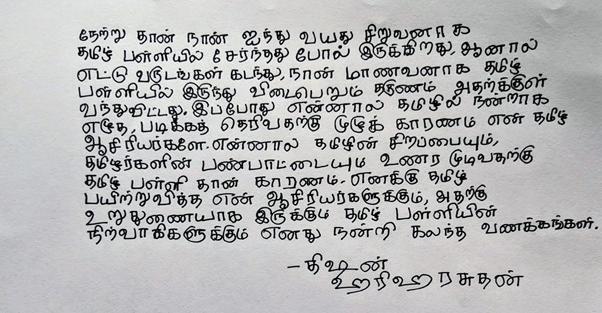 நேற்று தான் நான் ஐந்து வயது சிறுவனாக
தமிழ் பள்ளியில் சேர்ந்தது போல் இருக்கிறது. ஆனால்
எட்டு வருடங்கள் கடந்து, நான் மாணவனாக தமிழ்
பள்ளியில் இருந்து விடைபெறும் தருணம் அதற்க்குள்
வந்துவிட்டது. இப்போது என்னால் தமிழில் நன்றாக
எழுத, படிக்கத் தெரிவதற்கு முழுக் காரணம் என் தமிழ்
ஆசிரியர்களே. என்னால் தமிழின் சிறப்பையும்,
தமிழர்களின் பண்பாட்டையும் உணர முடிவதற்கு
தமிழ் பள்ளி தான் காரணம். எனக்கு தமிழ்
பயிற்றுவித்த என் ஆசிரியர்களுக்கும், அதற்கு
உறுதுணையாக இருக்கும் தமிழ் பள்ளியின்
நிர்வாகிகளுக்கும் எனது நன்றி கலந்த வணக்கங்கள்.
- திஷன்
ஹரிஹரசுதன்